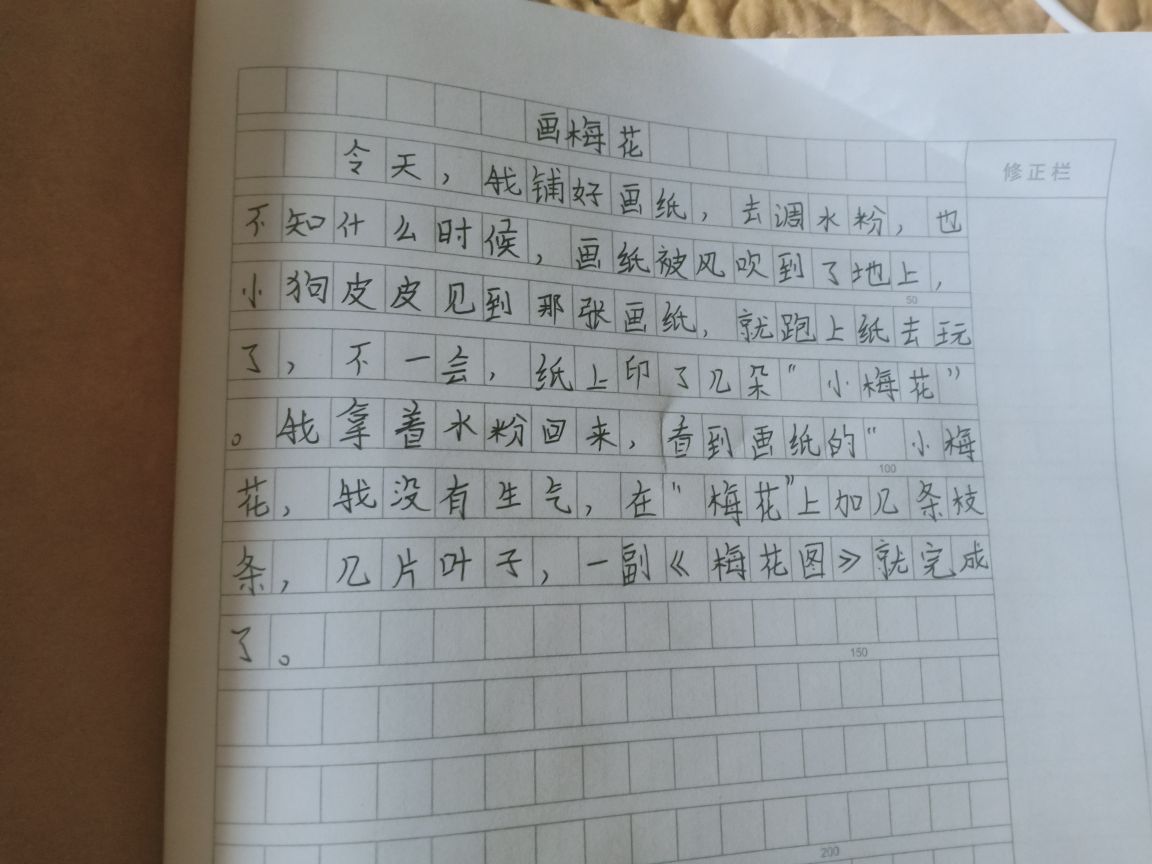 画梅花
今天，我铺好画纸，去调水粉，也
修正栏
不知什么时候，画纸被风吹到了地上，
50
小狗皮皮见到那张画纸，就跑上纸去玩
了，不一会，纸上印了几朵“小梅花”
。我拿着水粉回来，看到画纸的“小梅
100
花，我没有生气，在“梅花”上加几条枝
条，几片叶子，一副《梅花图》就完成
了。
150
200